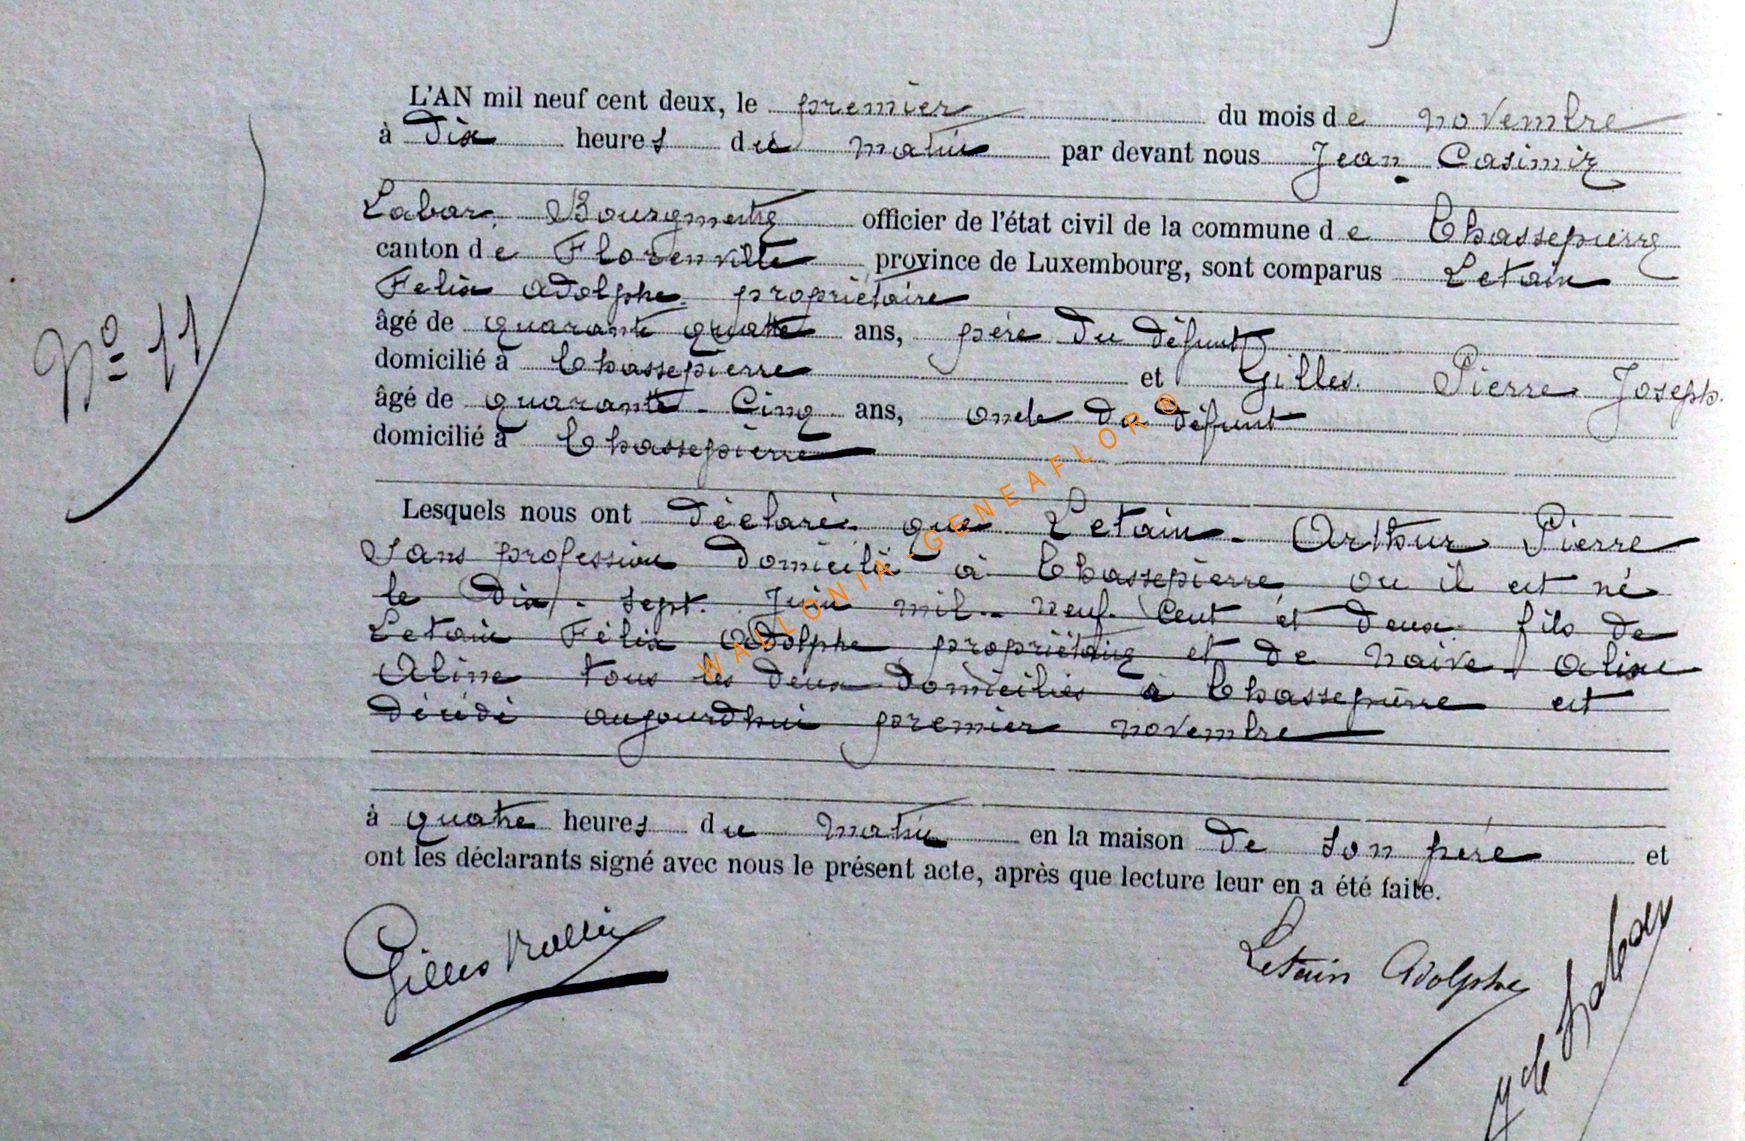 L'AN mil neuf cent deux, le premier du mois de novembre
à dix heures du matin par devant nous Jean Casimir
Labar, Bourgmestre officier de l'état civil de la commune de Chassepierre
canton de Florenville province de Luxembourg, sont comparus Letain
Felix Adolphe propriétaire
âgé de quarante quatre ans, père du défunt
domicilié à Chassepierre et Gilles Pierre Joseph
âgé de quarante-Cinq ans, oncle du défunt
domicilié à Chassepierre
N° 11
Lesquels nous ont déclaré que Letain Arthur Pierre
Sans profession domicilié à Chassepierre ou il est né
le dix-sept Juin mil-neuf Cent et deux fils de
Letain Félix Adolphe propriétaire et de Noive Aline
Aline tous les deux domiciliés à Chassepierre est
décédé aujourdhui premier novembre
à quatre heures du matin en la maison de son père et
ont les déclarants signé avec nous le présent acte, après que lecture leur en a été faite.
Gilles
Letain Adolphe
Labar
WALLONIA-GENEAFLOR®